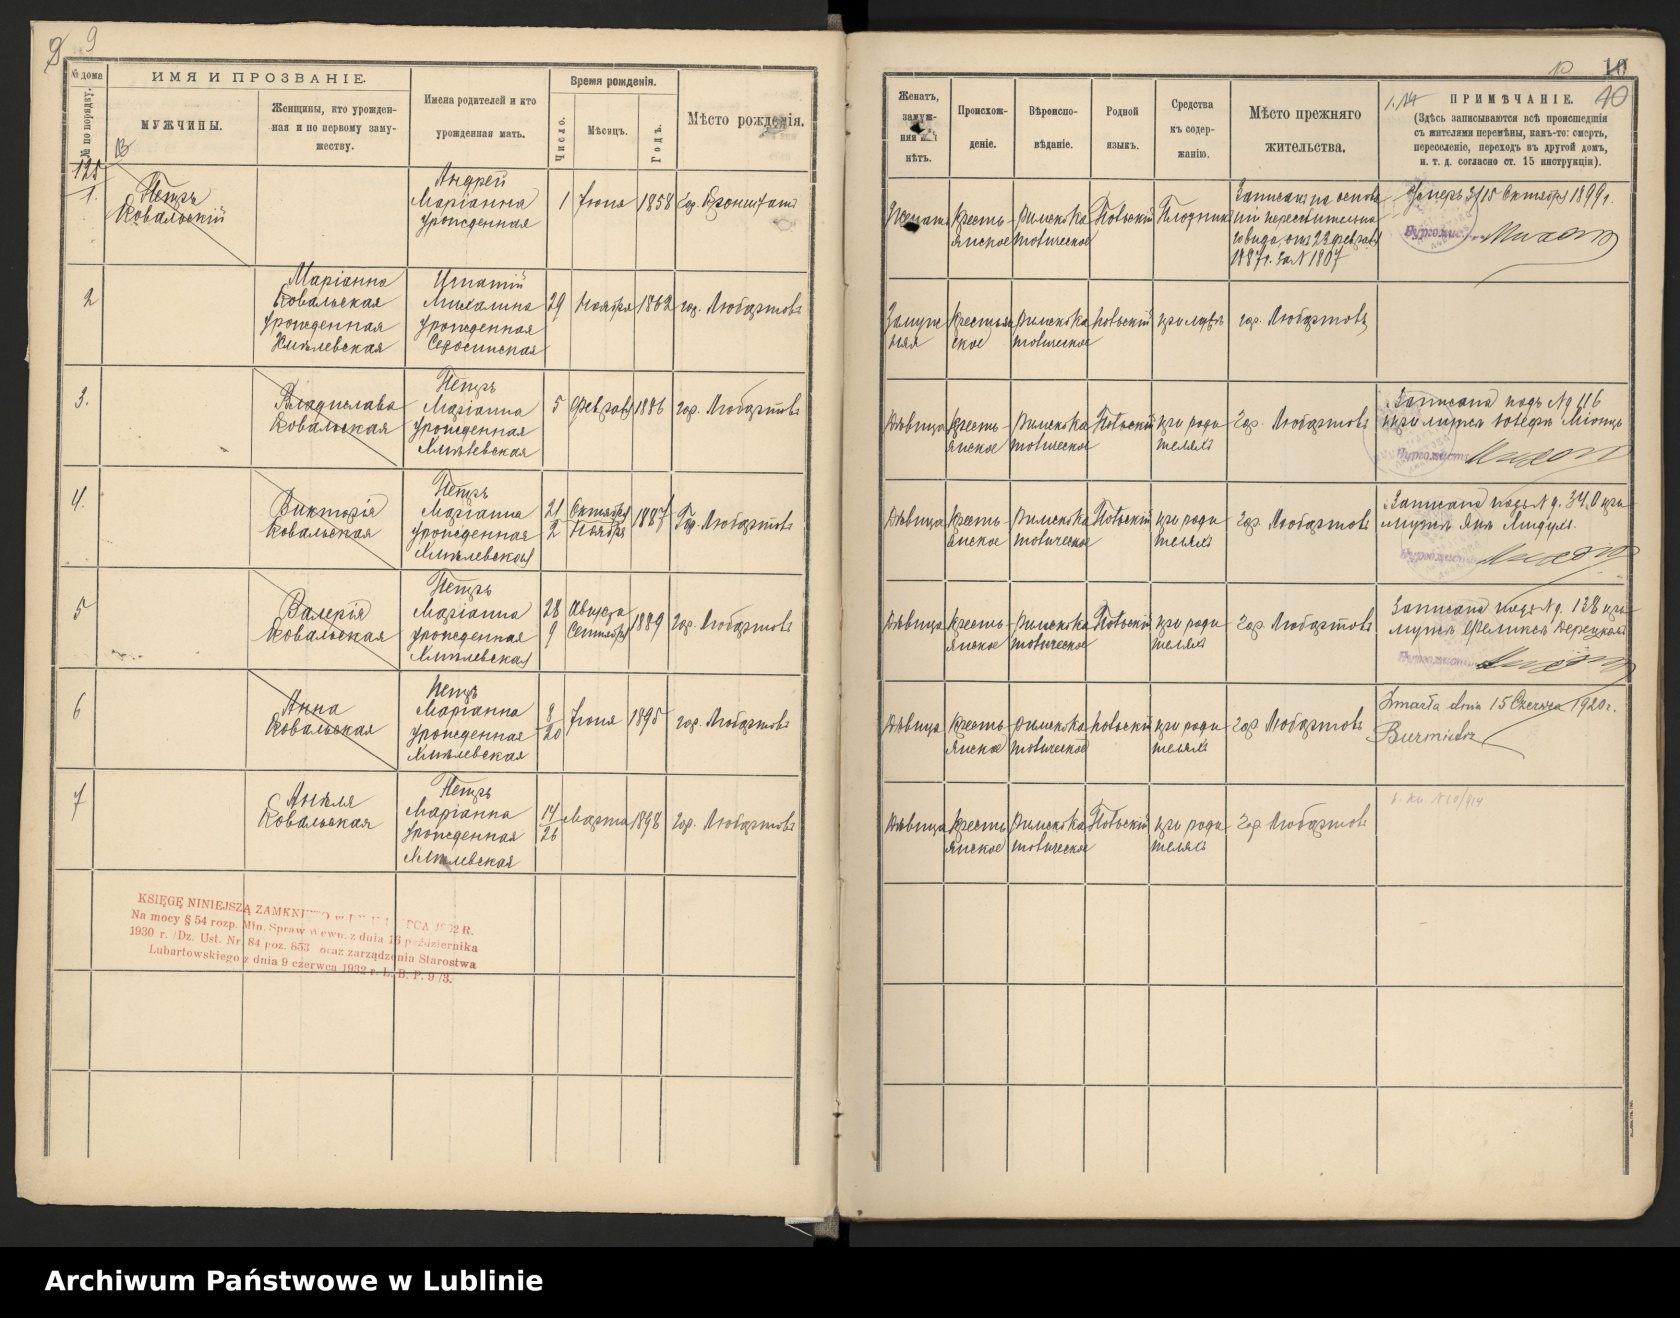 9
№ дома
№ по порядку.
ИМЯ И ПРОЗВАНІЕ.
МУЖЧИНЫ.
Женщины, кто урожден-
ная и по первому заму-
жеству.
Имена родителей и кто
урожденная мать.
Время рожденія.
Число.
Мѣсяцъ.
Годъ.
Мѣсто рожденія.
125
1.
Петръ
Ковальскій
Андрей
Маріанна
урожденная
1
Іюня
1858
2
Маріанна
Ковальская
урожденная
Игнатій
Михалина
урожденная
29
Ноября
1862
гор. Любартовъ
3.
Владислава
Ковальская
Петръ
Маріанна
урожденная
5
Февраля
1886
гор. Любартовъ
4.
Викторія
Ковальская
Петръ
Маріанна
урожденная
Хмѣлевская
21
2
Октября
Ноября
1887
Гор. Любартовъ
5
Валерія
Ковальская
Петръ
Маріанна
урожденная
Хмѣлевская
28
9
Августа
Сентября
1889
гор. Любартовъ
6
Анна
Ковальская
Петръ
Маріанна
урожденная
Хмѣлевская
8
20
Іюня
1895
гор. Любартовъ
7
Анеля
Ковальская
Петръ
Маріанна
урожденная
Хмѣлевская
14
26
Марта
1898
гор. Любартовъ
KSIĘGĘ NINIEJSZĄ ZAMKNIĘTO R.
Na mocy § 54 rozp. Min. Spraw Wewn. z dnia 16 października
1930 r. /Dz. Ust. Nr. 84 poz. 853 oraz zarządzenia Starostwa
Lubartowskiego z dnia 9 czerwca 1932 r. L. B. P. 9/3.
10
10
Женатъ,
замуж-
няя
нѣтъ.
Происхож-
деніе.
Вѣроиспо-
вѣданіе.
Родной
языкъ.
Средства
къ содер-
жанію.
Мѣсто прежняго
жительства.
ПРИМѢЧАНІЕ.
(Здѣсь записываются всѣ происшедшія
съ жителями перемѣны, какъ-то: смерть,
переселеніе, переходъ въ другой домъ,
и. т. д. согласно ст. 15 инструкціи).
Женатъ
Кресть-
янское
Римско Ка
толическое
Польскій
Записанъ на основа
ніи переселительна
го вида отъ 23 февраля
1887 г. за N 1807
Умеръ 3/15 Октября 1899 г.
Бургомистръ
Замуж
няя
Крестьян
ское
Римско Ка
толическое
Польскій
при мужѣ
гор. Любартовъ
Дѣвица
Кресть-
янское
Римско Ка
толическое
Польскій
при роди
теляхъ
гор. Любартовъ
Записана подъ № 116
Бургомистръ
Дѣвица
Кресть-
янское
Римско Ка
толическое
Польскій
при роди
теляхъ
гор. Любартовъ
Записана подъ № д. 340 при
мужѣ Янѣ
Бургомистръ
Дѣвица
Кресть-
янское
Римско Ка
толическое
Польскій
при роди
теляхъ
гор. Любартовъ
Записана подъ № д. 128 при
мужѣ Феликсѣ
Бургомистръ
Дѣвица
Кресть-
янское
Римско Ка
толическое
Польскій
при роди
теляхъ
гор. Любартовъ
Zmarła dnia 15 Czerwca 1920 r.
Burmistrz
Дѣвица
Кресть-
янское
Римско Ка
толическое
Польскій
при роди
теляхъ
гор. Любартовъ
Archiwum Państwowe w Lublinie